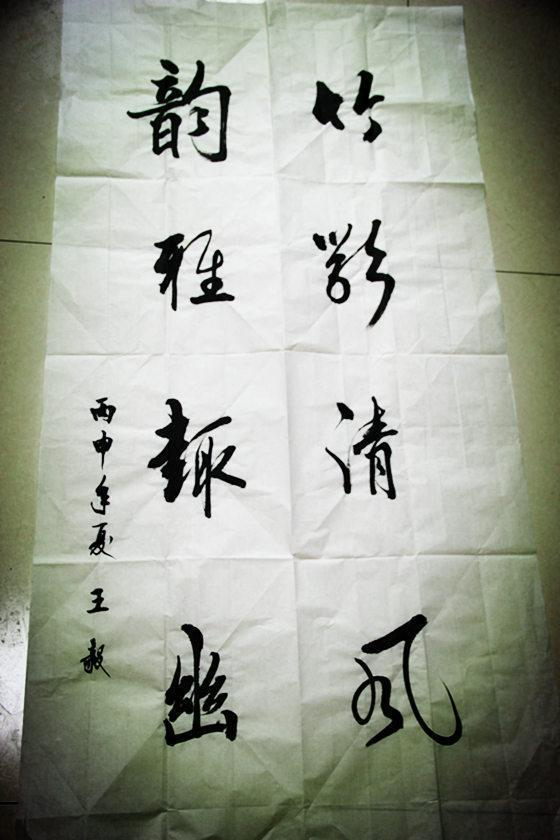 竹清风
韵雅趣幽
丙申年夏 王毅